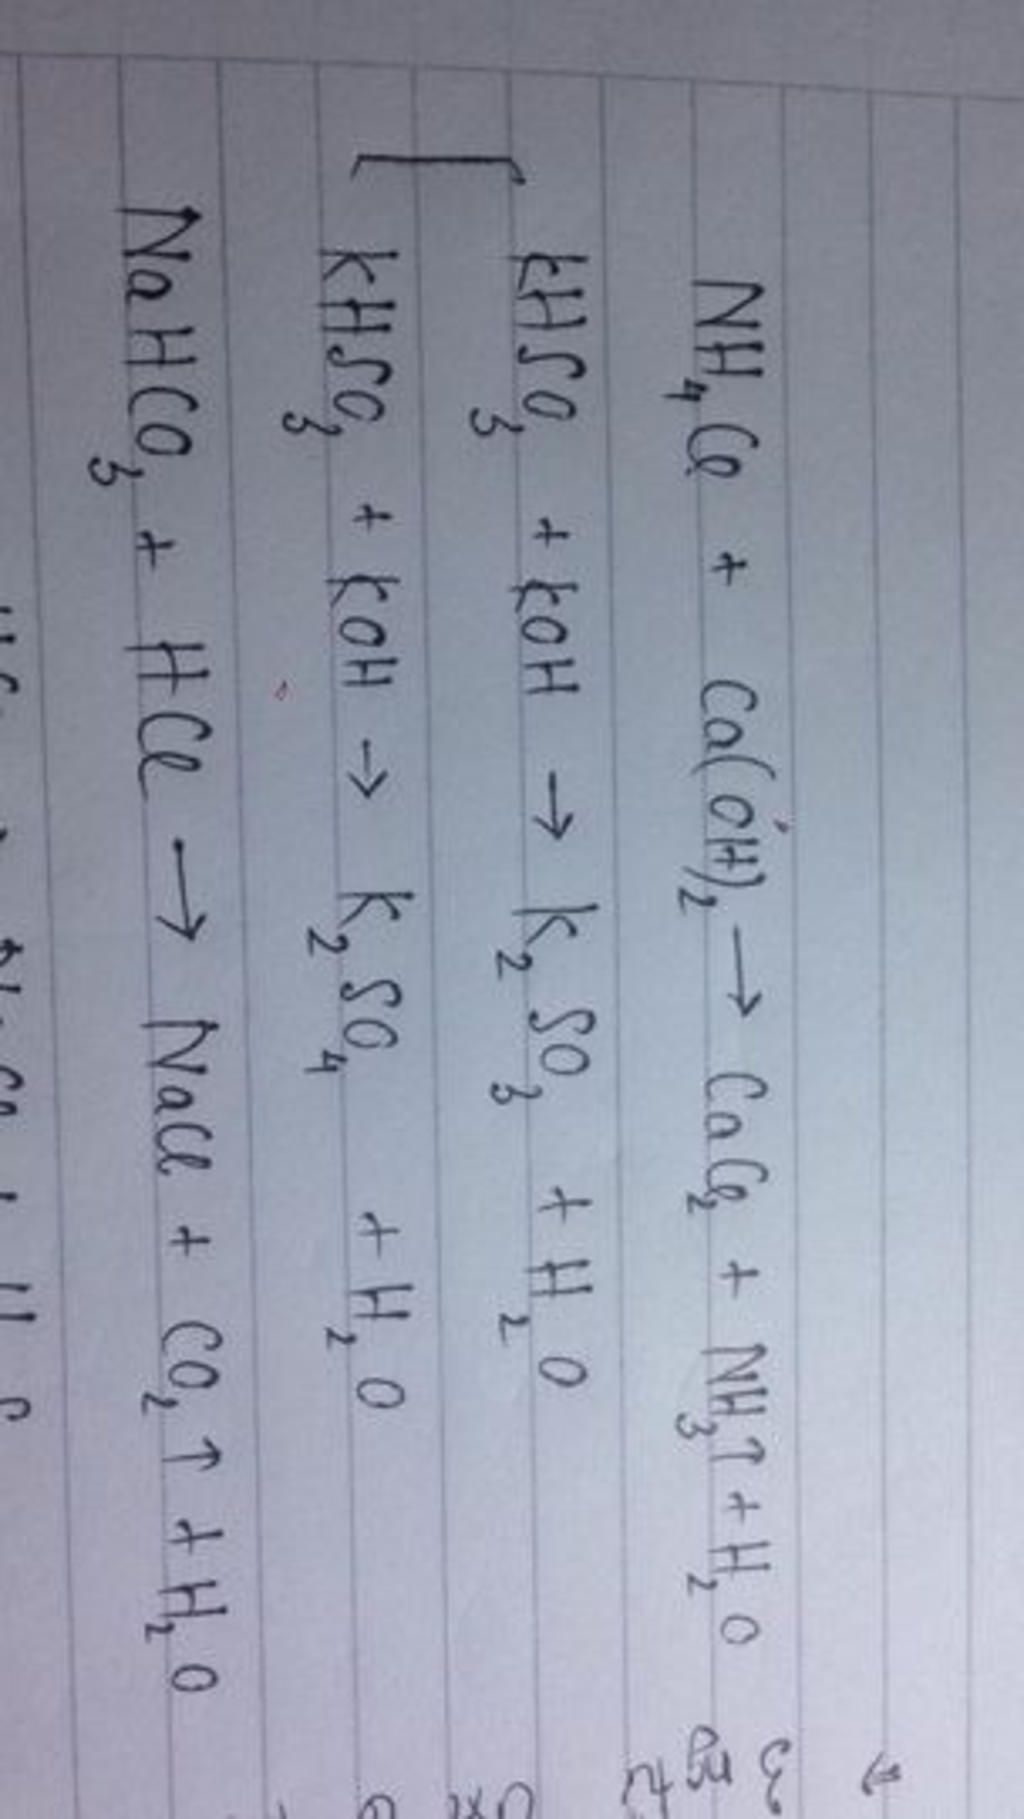 NH₄Cl + Ca(OH)₂ → CaCl₂ + NH₃↑ + H₂O
KHSO₃ + KOH → K₂SO₃ + H₂O
KHSO₃ + KOH → K₂SO₄ + H₂O
NaHCO₃ + HCl → NaCl + CO₂↑ + H₂O